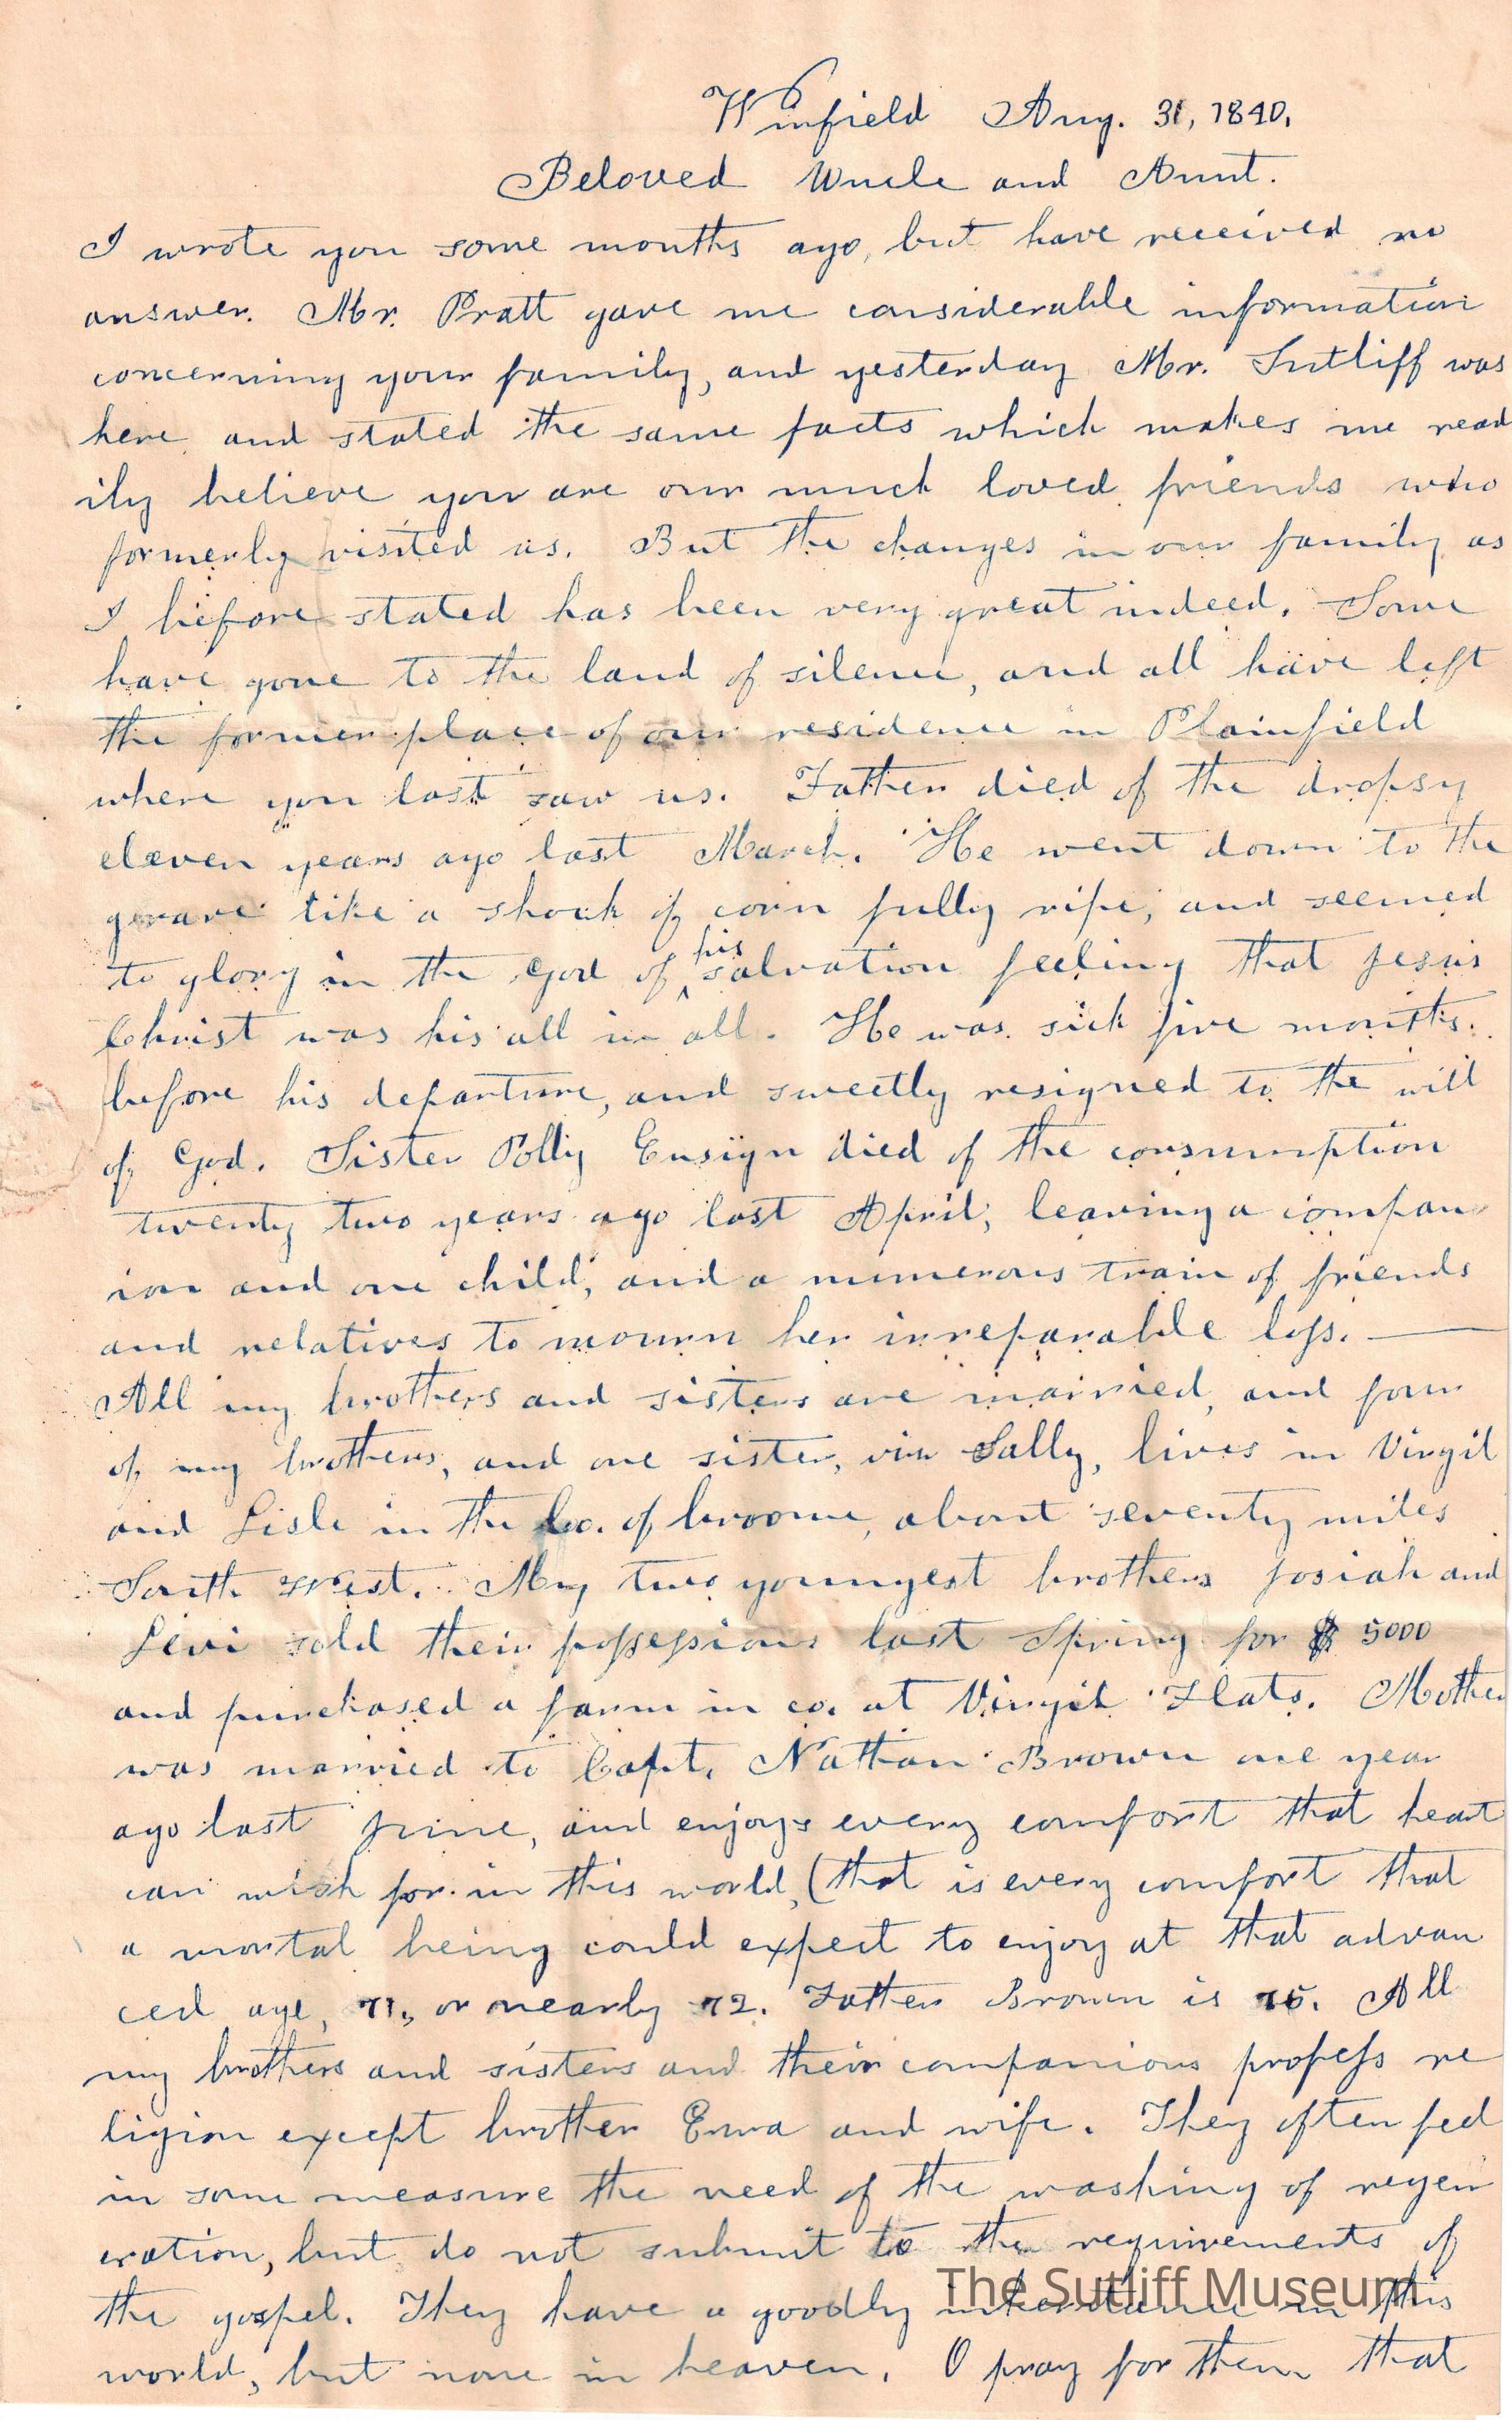 Winfield Aug. 31, 1840.
Beloved Uncle and Aunt.
I wrote you some months ago, but have received no
answer. Mr. Pratt gave me considerable information
concerning your family, and yesterday Mr. Sutliff was
here and stated the same facts which makes me read
ily believe you are our much loved friends who
formerly visited us. But the changes in our family as
I before stated has been very great indeed. Some
have gone to the land of silence, and all have left
the former place of our residence in Plainfield
where you last saw us. Father died of the dropsy
eleven years ago last March. He went down to the
grave like a shock of corn fully ripe, and seemed
to glory in the God of his salvation feeling that Jesus
Christ was his all in all. He was sick five months
before his departure, and sweetly resigned to the will
of God. Sister Polly Ensign died of the consumption
twenty two years ago last April, leaving a compan
ion and one child, and a numerous train of friends
and relatives to mourn her irreparable loss. —
All my brothers and sisters are married, and four
of my brothers, and one sister, viz Sally, lives in Virgil
and Lisle in the Co. of broome, about seventy miles
South West. My two youngest brothers Josiah and
Levi sold their possessions last Spring for $ 5000
and purchased a farm in co. at Virgil Flats. Mother
was married to Capt. Nathan Brown one year
ago last June, and enjoys every comfort that heart
can wish for in this world, (that is every comfort that
a mortal being could expect to enjoy at that advan
ced age, 71, or nearly 72. Father Brown is 75. All
my brothers and sisters and their companions profess re
ligion except brother Ezra and wife. They often feel
in some measure the need of the washing of regen
eration, but do not submit to the requirements of
the gospel. They have a goodly inheritance in this
world, but none in heaven. O pray for them that
The Sutliff Museum